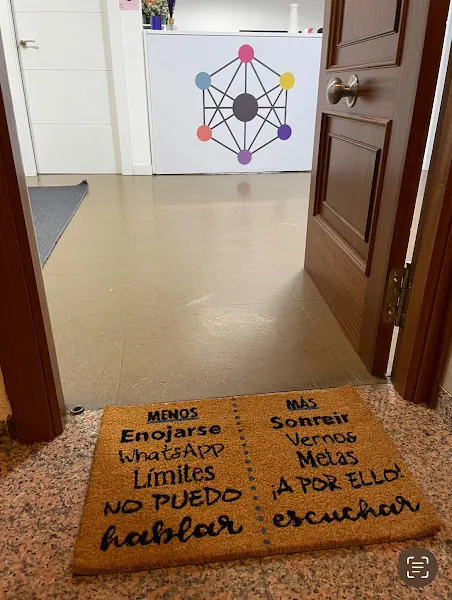 MENOS
Enojarse
WhatsApp
Límites
NO PUEDO
hablar
MÁS
Sonreir
Vernos
Metas
¡A POR ELLO!
escuchar